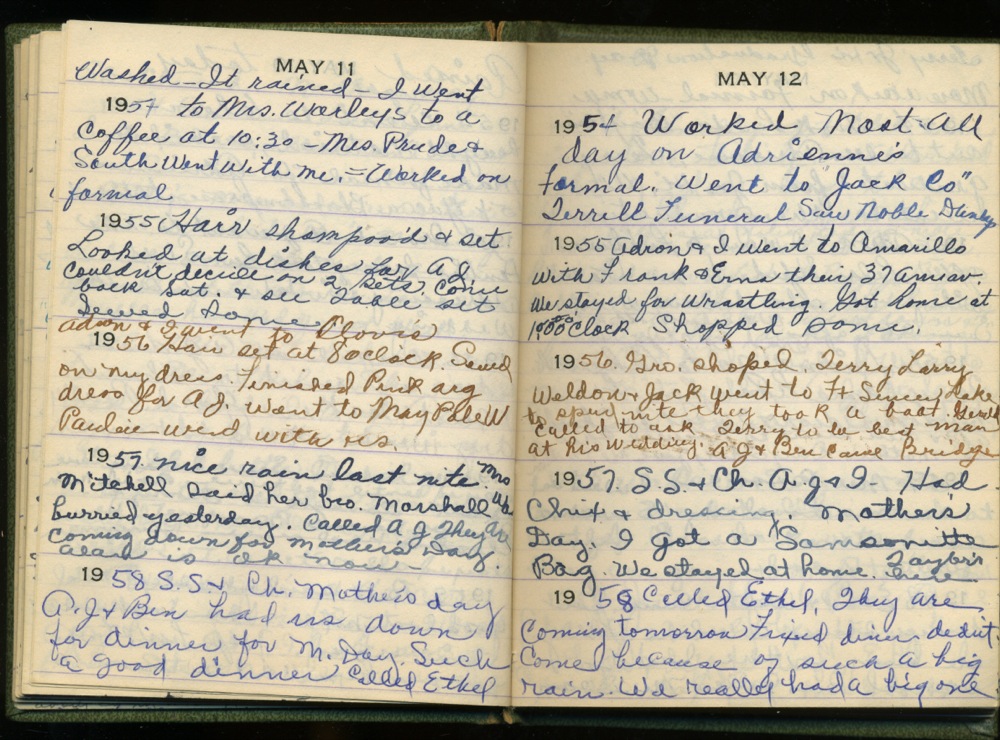 MAY 11
Washed - It rained - I went
1954 to Mrs. Worleys to a
Coffee at 10:30 - Mrs. Prude &
South Went With me. = Worked on
formal
1955 Hair shampood & set
Looked at dishes for A J
Couldn't decide on 2 sets. Come
back Sat. & see table set
Sewed some
Adron & I went to Clovis
1956 Hair set at 8 oclock. Sewed
on my dress. Finished Pink arg
dress for A J. Went to May Pole W
Paulsie went with us.
1957. nice rain last nite. Mrs
Mitchell said her bro. Marshall was
burried yesterday. Called A J They are
coming down for Mothers Day.
Alan is ok now -
1958 S.S. & Ch. Mothers day
A.J & Ben had us down
for dinner for M. Day. Such
a good dinner Called Ethel
MAY 12
1954 Worked Most All
day on Adrienne's
formal. Went to "Jack Co"
Terrill Funeral Saw Noble
1955 Adron & I went to Amarillo
with Frank & Erna their 37 anniv.
We stayed for Wrastling. Got home at
O'Clock Shopped some.
1956. Gro. shoped. Terry Larry
Weldon & Jack went to Ft Sumner Lake
to spen nite they took a boat.
called to ask Terry to be best man
at his Wedding. A J & Ben came Bridge
1957. S.S. & Ch. A.J & I - Had
Chix & dressing, Mother's
Day. I got a Samsonite
Bag. We stayed at home. Taylor's
here
1958 Called Ethel. They are
Coming tomorrow Fryed diner dednt
Come because of such a big
rain. We really had a big one